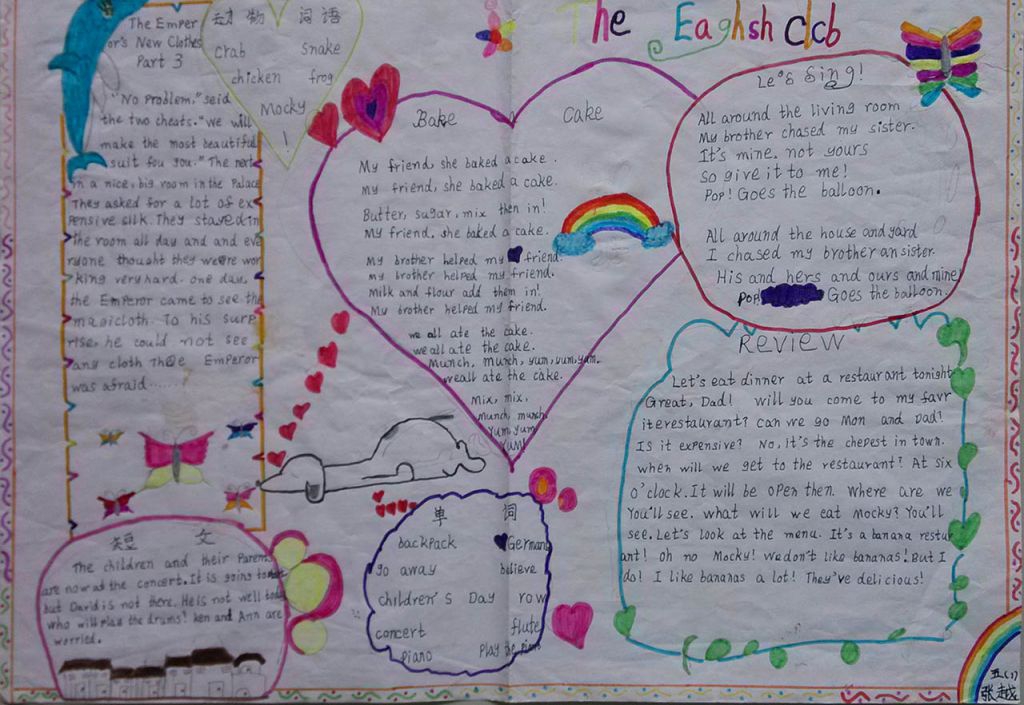 The Eaghsh clcb
The Emper
or's New Clothes
Part 3
"No Problem," seid
the two cheats. "we will
make the most beautiful
suit fou you." The next
in a nice, big room in the Palace
They asked for a lot of ex
Pensive silk. They stayed in
the room all day and and eve
ryone thought they weere wor
king very hard. one day,
the Emperor came to see the
magicloth. To his surp
rise, he could not see
any cloth. The Emperor
was afraid.......
动物 词语
Crab Snake
chicken frog
Mocky
!
Bake a Cake
My friend, she baked a cake.
My friend, she baked a cake.
Butter, sugar, mix then in!
My friend, she baked a cake.
My brother helped my friend.
my brother helped my friend.
Milk and flour add them in!
My brother helped my friend.
we all ate the cake.
we all ate the cake.
Munch, munch, yum, yum, yum.
we all ate the cake.
Mix, mix,
munch, munch,
yum, yum
yum!
Le's Sing!
All around the living room
My brother chased my sister.
It's mine, not yours
so give it to me!
Pop! Goes the balloon.
All around the house and yard
I chased my brother an sister.
His and hers and ours and mine
Pop! Goes the balloon.
Review
Let's eat dinner at a restaurant tonight
Great, Dad! will you come to my favr
iterestaurant? can we go Mon and Dad?
Is it expensive? No, it's the chepest in town.
when will we get to the restaurant? At six
o'clock. It will be open then. Where are we
You'll see. what will we eat Mocky? You'll
see. Let's look at the menu. It's a banana restur
ant! oh no Mocky! we don't like bananas! But I
do! I like bananas a lot! They've delicious!
短文
The children and their Parents
are now at the concert. It is going to
but David is not there. He is not well today
who will play the drums? ken and Ann are
worried.
单词
backpack Germany
go away believe
children's Day row
concert flute
piano play the piano
五(1)
张越